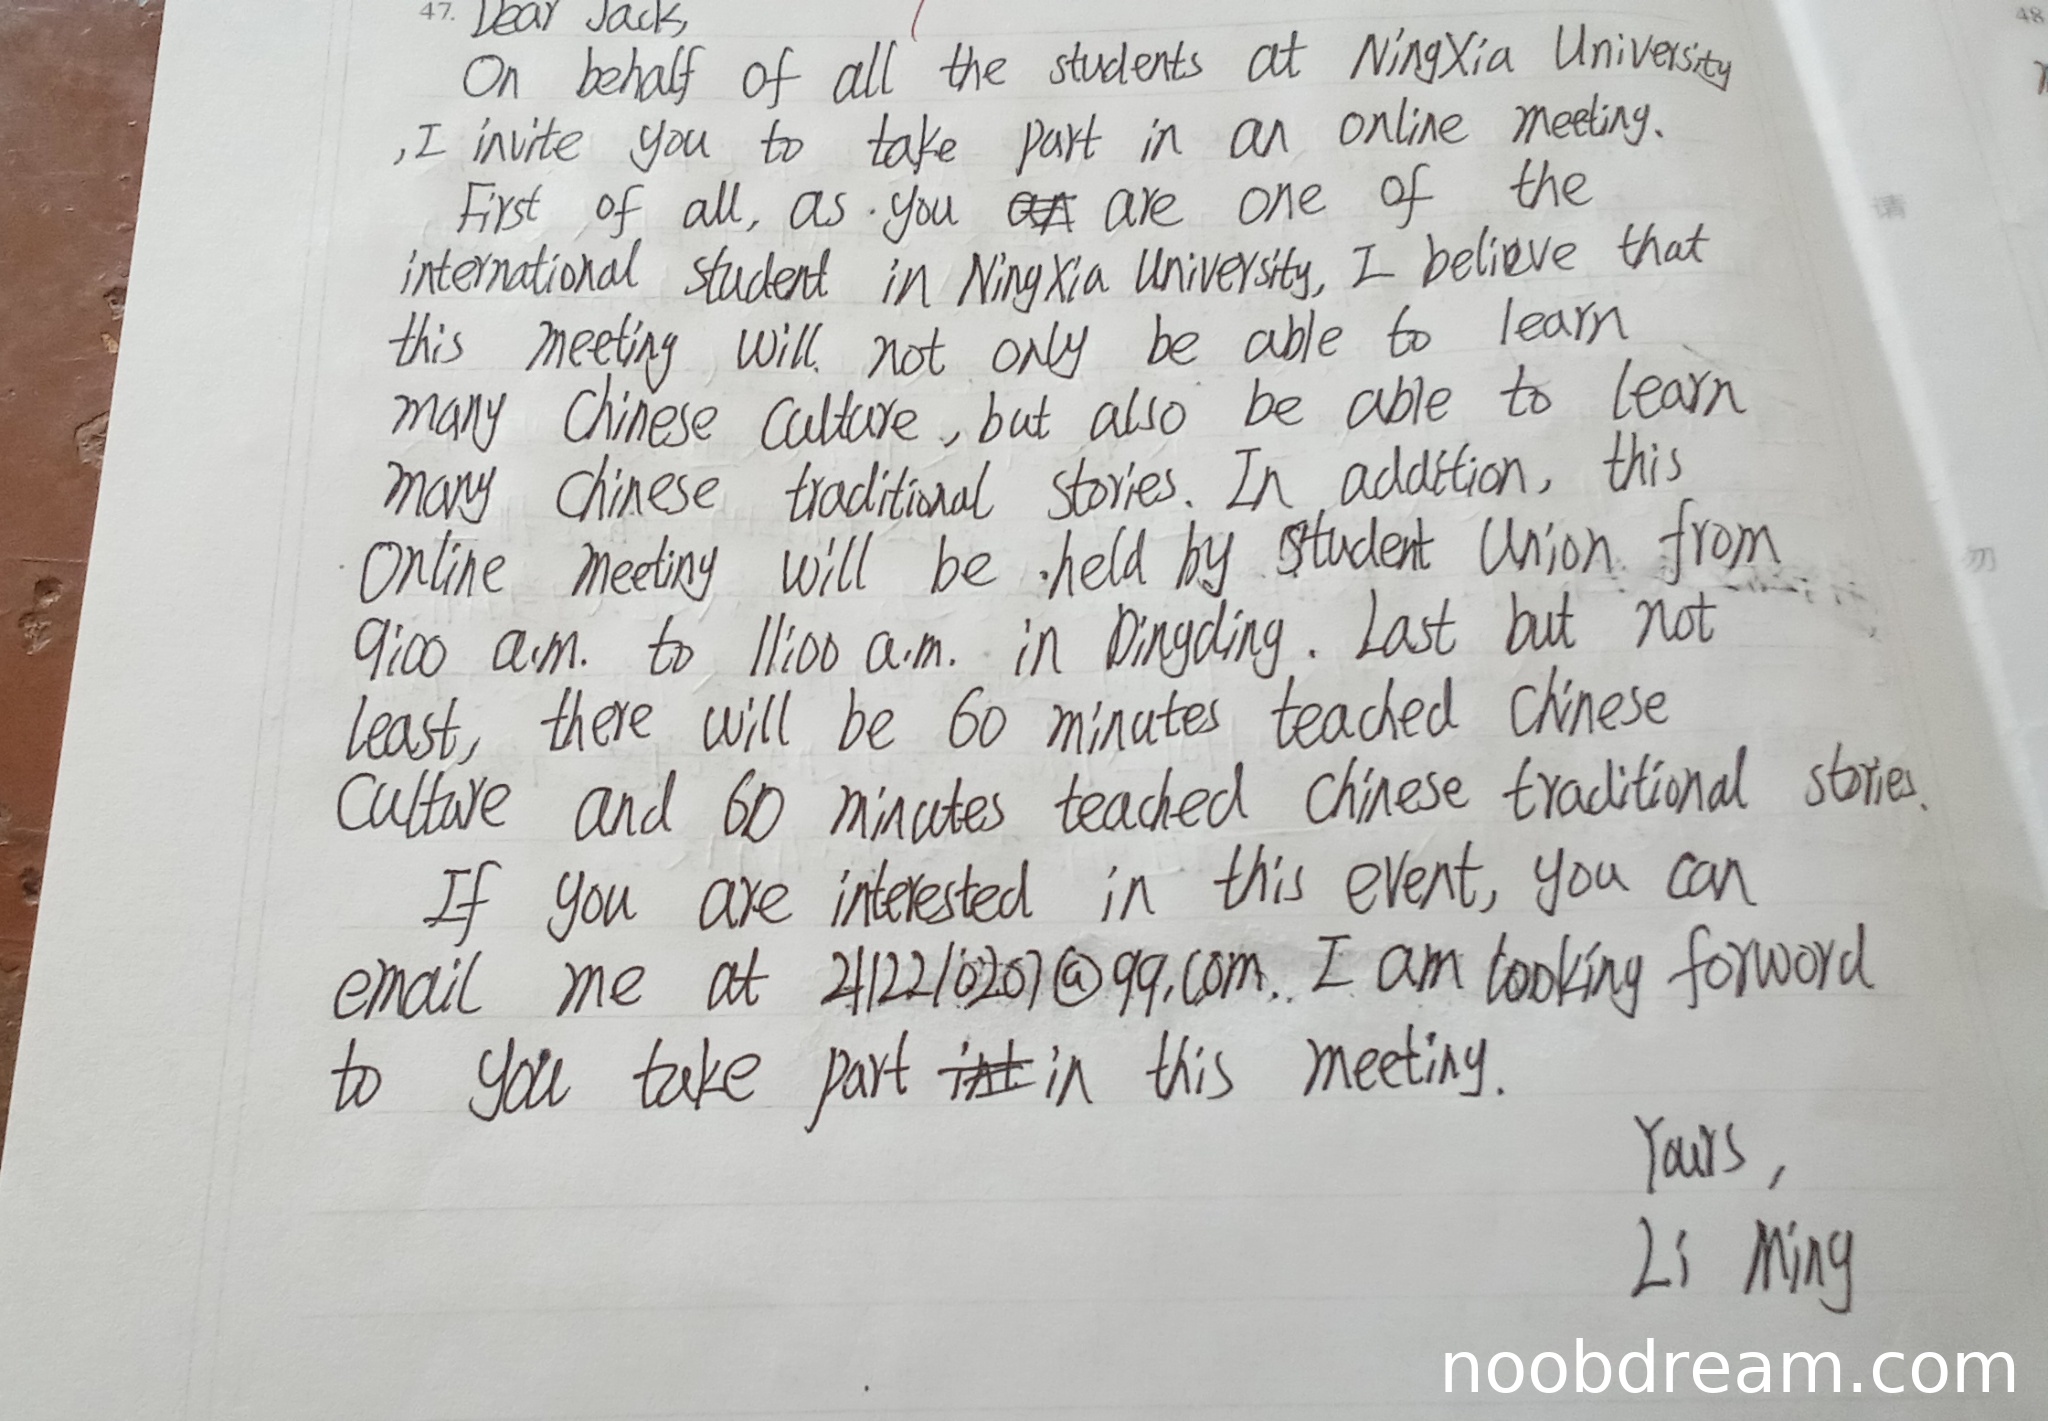 47. Dear Jack,
On behalf of all the students at NingXia University
, I invite you to take part in an online meeting.
First of all, as you are one of the
international student in NingXia University, I believe that
this meeting will not only be able to learn
many Chinese Culture, but also be able to learn
many Chinese traditional stories. In addition, this
Online meeting will be held by Student Union from
9:00 a.m. to 11:00 a.m. in Dingding. Last but not
least, there will be 60 minutes teached Chinese
Culture and 60 minutes teached Chinese traditional stories.
If you are interested in this event, you can
email me at @qq.com. I am looking forword
to you take part in this meeting.
Yours,
Li Ming
48
请
勿
noobdream.com